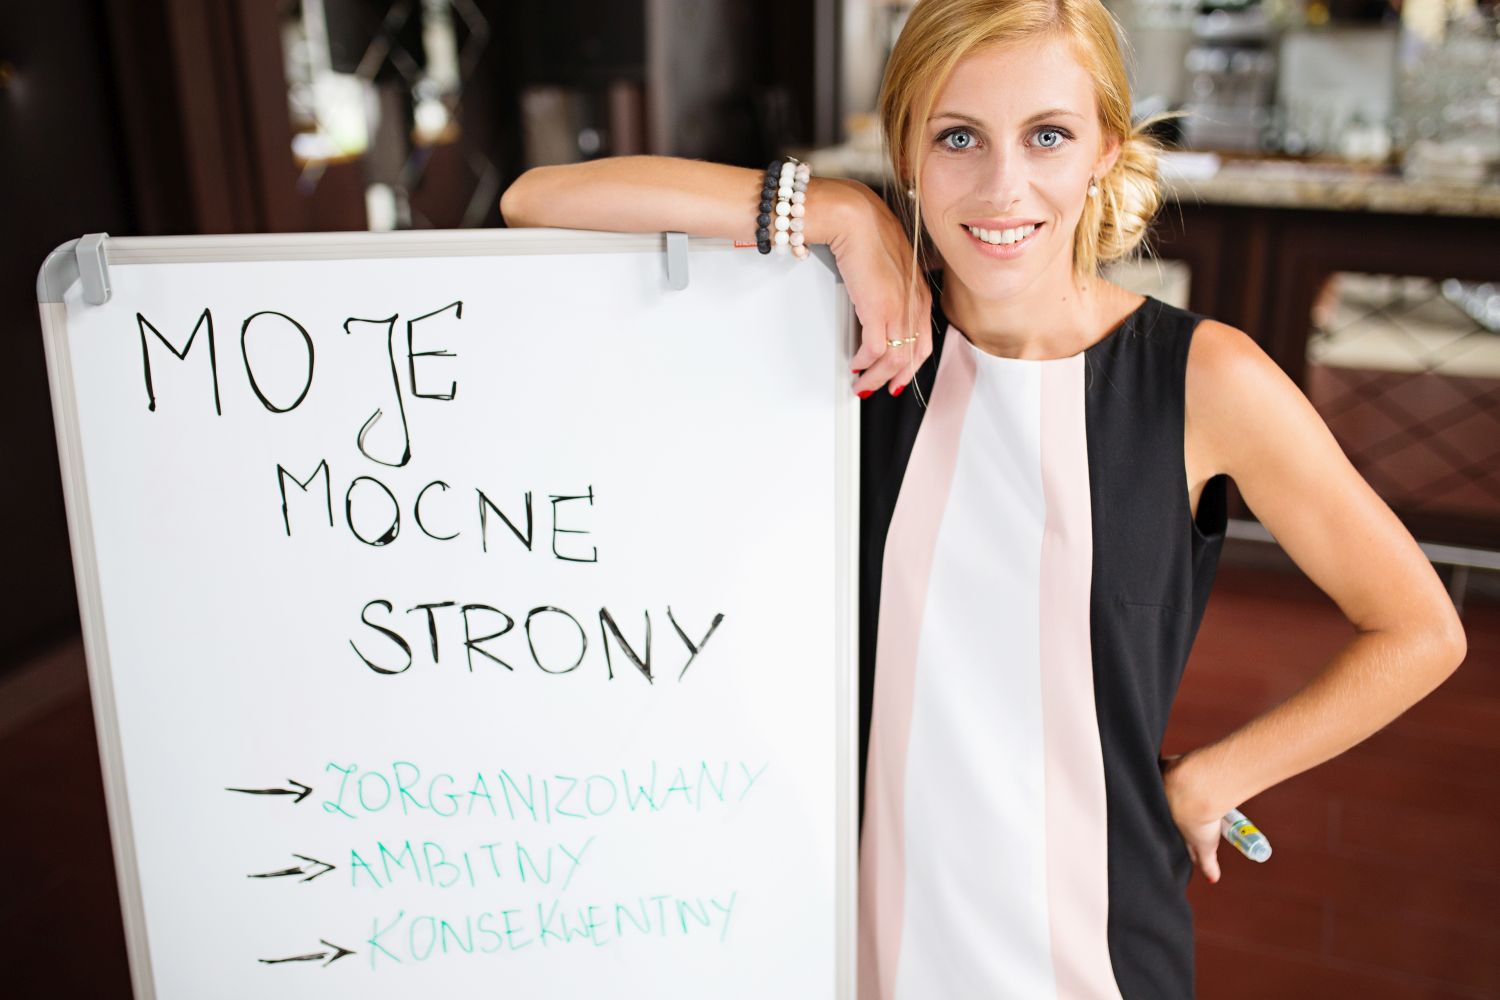 MOJE
MOCNE
STRONY
→ ZORGANIZOWANY
→ AMBITNY
→ KONSEKWENTNY